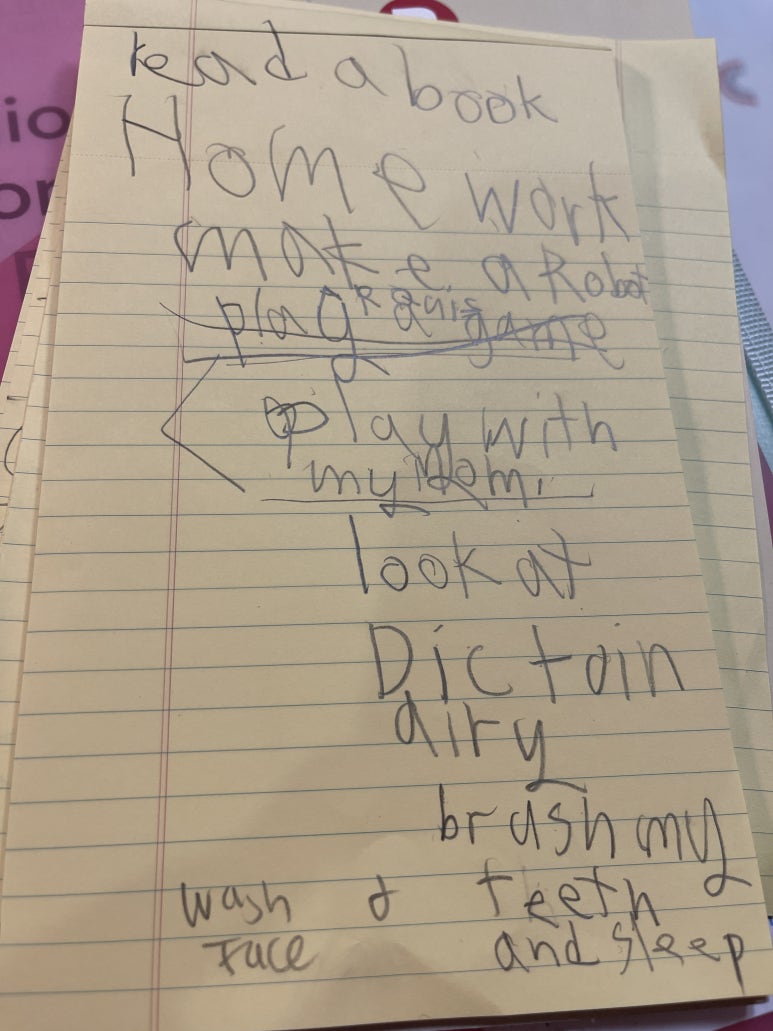 read a book
Home work
make a Robot
play a game
play with
my Mom.
look at
Dictain
airy
brush my
wash & teeth
Face and sleep
io
or